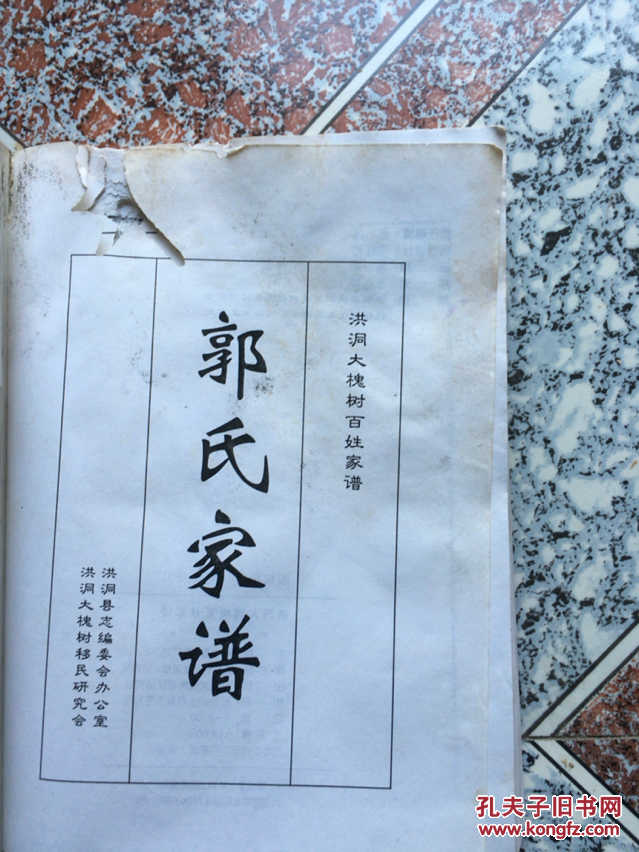 洪洞大槐树百姓家谱
郭氏家谱
洪洞县志编委会办公室
洪洞大槐树移民研究会
孔夫子旧书网
www.kongfz.com